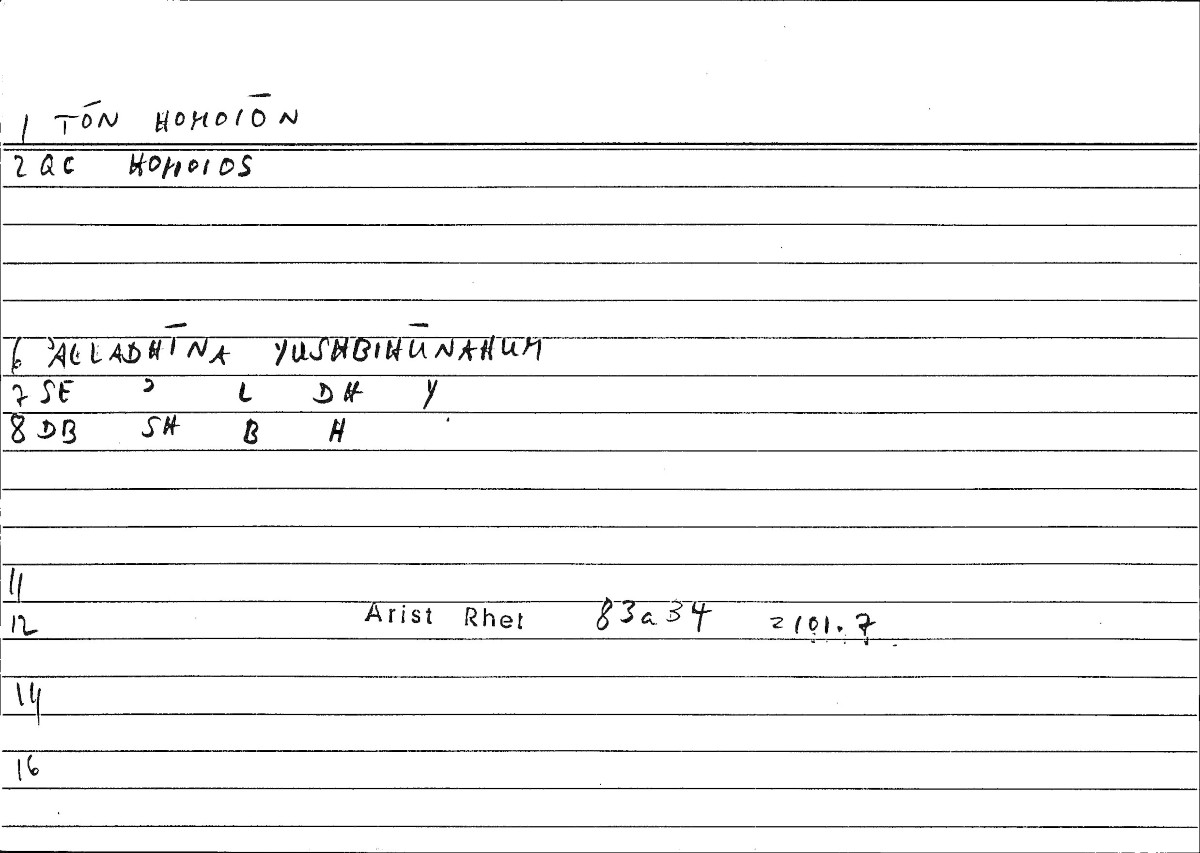 1 TŌN HOMOIŌN
2 QC HOMOIOS
6 ʾALLADHĪNA YUSHBIHŪNAHUM
7 SE ʾ L DH Y
8 DB SH B H
11
12 Arist Rhet 83a34 =101.7
14
16